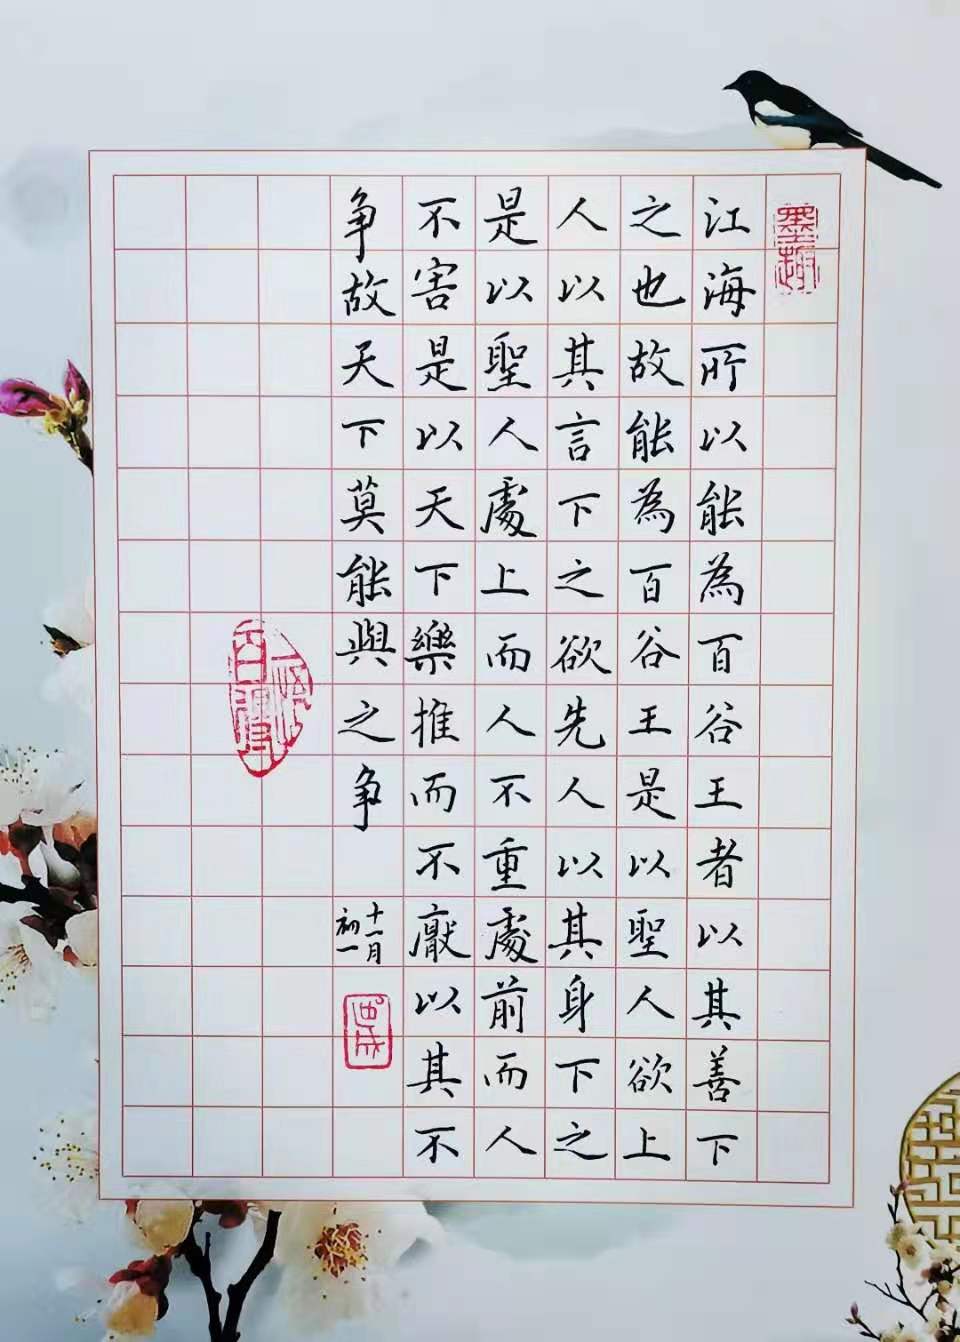 墨趣
江海所以能為百谷王者以其善下
之也故能為百谷王是以聖人欲上
人以其言下之欲先人以其身下之
是以聖人處上而人不重處前而人
不害是以天下樂推而不厭以其不
争故天下莫能與之争
十一月
初一